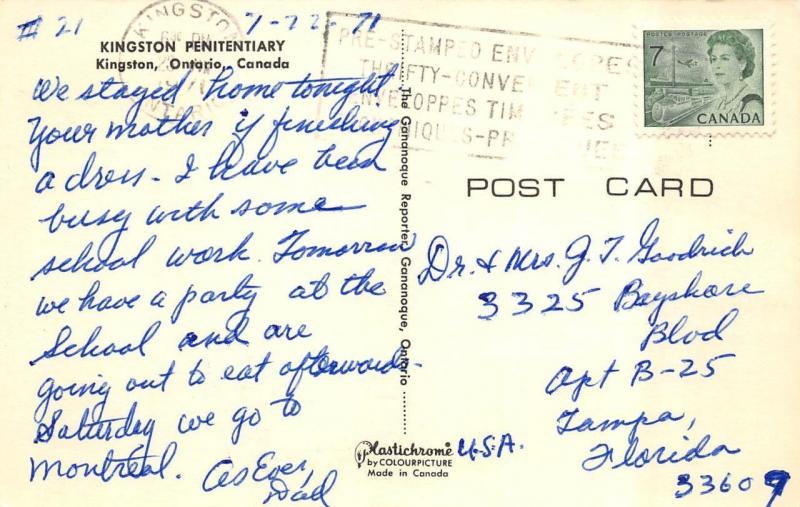 #21 7-22-71
KINGSTON PENITENTIARY
Kingston, Ontario, Canada
We stayed home tonight
Your mother is finishing
a dress - I have been
busy with some
school work. Tomorrow
we have a party at the
School and are
going out to eat afterwards.
Saturday we go to
Montreal. As Ever,
Dad
KINGSTON
PM
1971
ONTARIO
PRE-STAMPED ENVELOPES
THRIFTY-CONVENIENT
ENVELOPPES TIMBREES
The Gananoque Reporter, Gananoque, Ontario
Plastichrome
by COLOURPICTURE
Made in Canada
POSTES POSTAGE
7
CANADA
POST CARD
Dr. & Mrs. J. T. Goodrich
3325 Bayshore
Blvd
Apt B-25
Tampa,
Florida
33609
U.S.A.